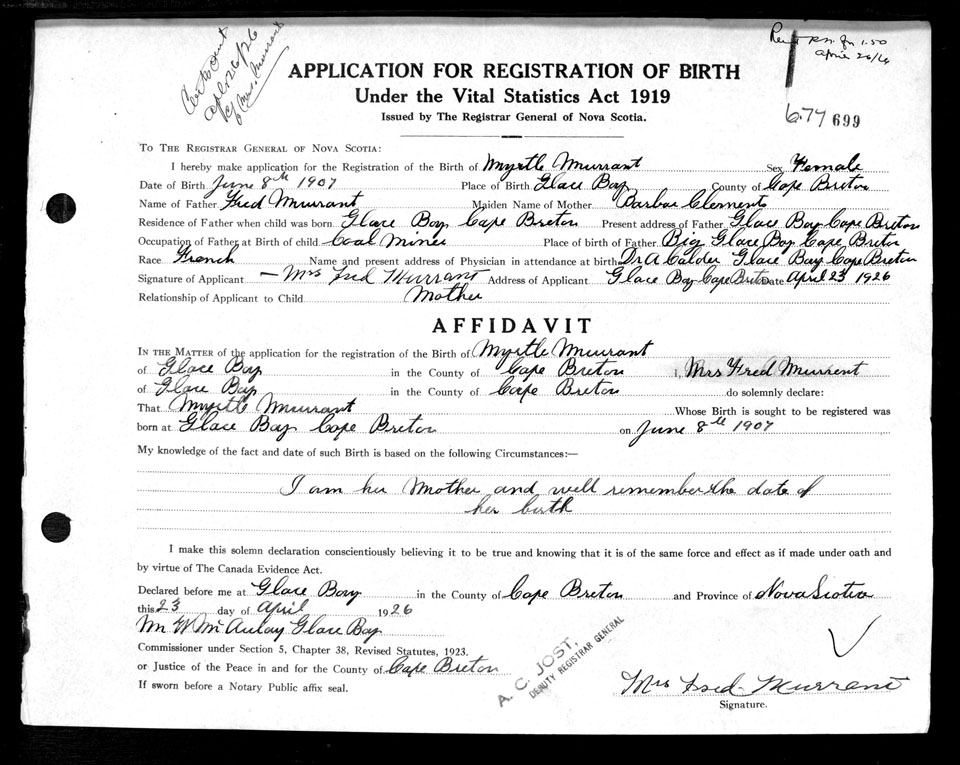 Cert sent
Apl 26/26
to Mrs. Murrant
Rec'd for 1.50
April 26/26
APPLICATION FOR REGISTRATION OF BIRTH
Under the Vital Statistics Act 1919
Issued by The Registrar General of Nova Scotia.
677 699
TO THE REGISTRAR GENERAL OF NOVA SCOTIA:
I hereby make application for the Registration of the Birth of Myrtle Murrant Sex Female
Date of Birth June 8th 1907 Place of Birth Glace Bay County of Cape Breton
Name of Father Fred Murrant Maiden Name of Mother Barbar Clements
Residence of Father when child was born Glace Bay Cape Breton Present address of Father Glace Bay Cape Breton
Occupation of Father at Birth of child Coal Miner Place of birth of Father Big Glace Bay Cape Breton
Race French Name and present address of Physician in attendance at birth Dr A Calder Glace Bay Cape Breton
Signature of Applicant – Mrs Fred Murrant Address of Applicant Glace Bay Cape Breton Date April 23 1926
Relationship of Applicant to Child Mother
AFFIDAVIT
IN THE MATTER of the application for the registration of the Birth of Myrtle Murrant
of Glace Bay in the County of Cape Breton I, Mrs Fred Murrent
of Glace Bay in the County of Cape Breton do solemnly declare:
That Myrtle Murrant Whose Birth is sought to be registered was
born at Glace Bay Cape Breton on June 8th 1907
My knowledge of the fact and date of such Birth is based on the following Circumstances:—
I am her Mother and well remember the date of
her birth
I make this solemn declaration conscientiously believing it to be true and knowing that it is of the same force and effect as if made under oath and
by virtue of The Canada Evidence Act.
Declared before me at Glace Bay in the County of Cape Breton and Province of Nova Scotia
this 23 day of April 1926
Wm W McAulay Glace Bay
Commissioner under Section 5, Chapter 38, Revised Statutes, 1923.
or Justice of the Peace in and for the County of Cape Breton
If sworn before a Notary Public affix seal.
A. C. JOST,
DEPUTY REGISTRAR GENERAL
Mrs Fred Murrent
Signature.